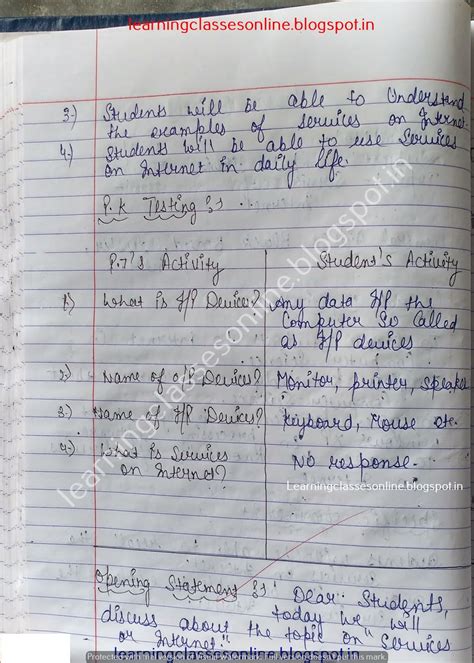 learningclassesonline.blogspot.in
3.) Students will be able to Understand
the examples of services on Internet.
4.) Students will be able to use Services
on Internet in daily life.
P.K Testing :-
P.T's Activity Student's Activity
1) What is I/P Devices? any data I/P the
Computer So Called
as I/P devices
2.) Name of O/P Devices? Monitor, printer, speaker
3.) Name of I/P Devices? Keyboard, Mouse etc.
4.) What is Services No response.
on Internet?
Learningclassesonline.blogspot.in
learningclassesonline.blogspot.in
Opening Statement :- "Dear Students,
today we will
discuss about the topic on "Services
or Internet."
learningclassesonline.blogspot.in